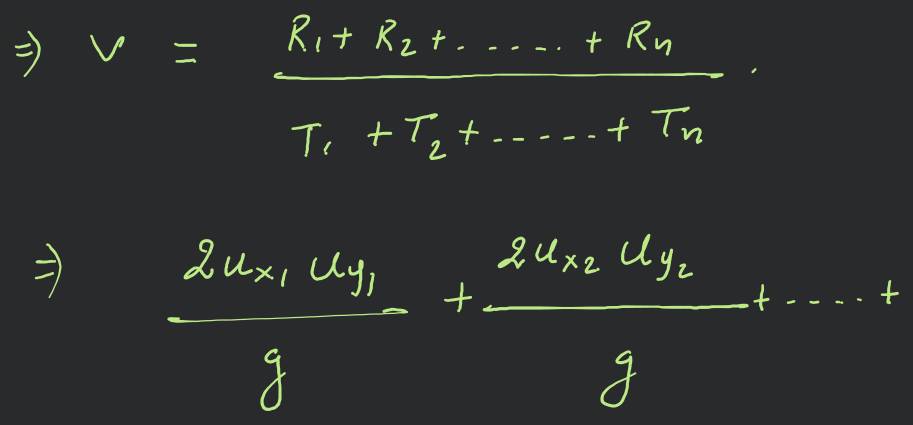 ⇒ v = R₁ + R₂ + ...... + Rₙ
T₁ + T₂ + ...... + Tₙ
⇒ 2uₓ₁ u_y₁ + 2uₓ₂ u_y₂ + ..... +
g g